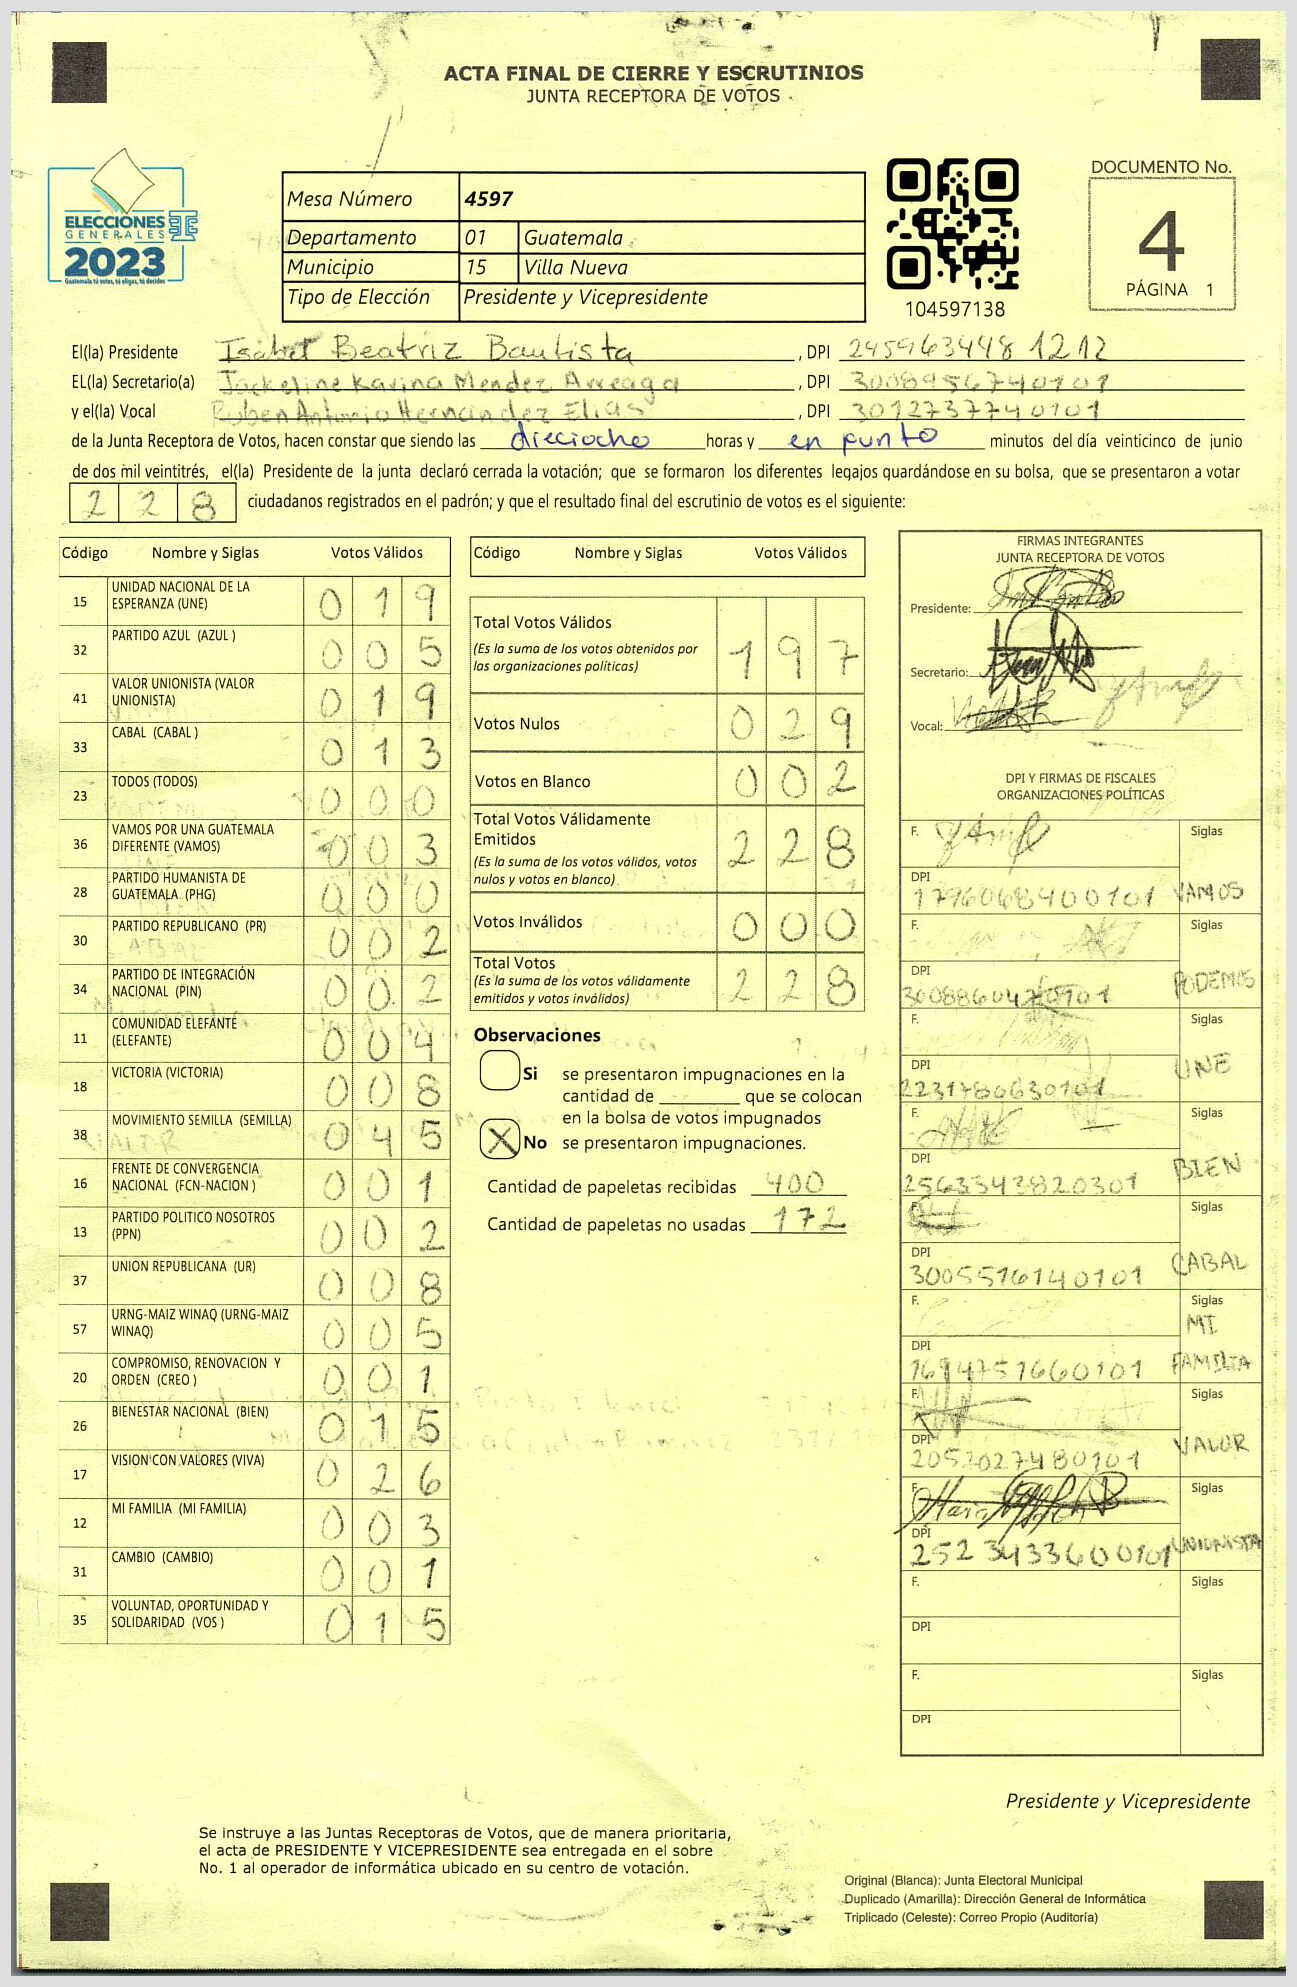 ACTA FINAL DE CIERRE Y ESCRUTINIOS
JUNTA RECEPTORA DE VOTOS
ELECCIONES
GENERALES
2023
Guatemala tú votas, tú eliges, tú decides
Mesa Número 4597
Departamento 01 Guatemala
Municipio 15 Villa Nueva
Tipo de Elección Presidente y Vicepresidente
104597138
DOCUMENTO No.
4
PÁGINA 1
El(la) Presidente Isabel Beatriz Bautista, DPI 245963448 1212
EL(la) Secretario(a) Jackeline Karina Mendez Arreaga, DPI 3008956740101
y el(la) Vocal Ruben Antonio Hernández Elias, DPI 3012737740101
de la Junta Receptora de Votos, hacen constar que siendo las dieciocho horas y en punto minutos del día veinticinco de junio
de dos mil veintitrés, el(la) Presidente de la junta declaró cerrada la votación; que se formaron los diferentes legajos guardándose en su bolsa, que se presentaron a votar
228 ciudadanos registrados en el padrón; y que el resultado final del escrutinio de votos es el siguiente:
Código Nombre y Siglas Votos Válidos
15 UNIDAD NACIONAL DE LA ESPERANZA (UNE) 019
32 PARTIDO AZUL (AZUL ) 005
41 VALOR UNIONISTA (VALOR UNIONISTA) 019
33 CABAL (CABAL ) 013
23 TODOS (TODOS) 000
36 VAMOS POR UNA GUATEMALA DIFERENTE (VAMOS) 003
28 PARTIDO HUMANISTA DE GUATEMALA (PHG) 000
30 PARTIDO REPUBLICANO (PR) 002
34 PARTIDO DE INTEGRACIÓN NACIONAL (PIN) 002
11 COMUNIDAD ELEFANTE (ELEFANTE) 004
18 VICTORIA (VICTORIA) 008
38 MOVIMIENTO SEMILLA (SEMILLA) 045
16 FRENTE DE CONVERGENCIA NACIONAL (FCN-NACION ) 001
13 PARTIDO POLITICO NOSOTROS (PPN) 002
37 UNION REPUBLICANA (UR) 008
57 URNG-MAIZ WINAQ (URNG-MAIZ WINAQ) 005
20 COMPROMISO, RENOVACION Y ORDEN (CREO ) 001
26 BIENESTAR NACIONAL (BIEN) 015
17 VISION CON VALORES (VIVA) 026
12 MI FAMILIA (MI FAMILIA) 003
31 CAMBIO (CAMBIO) 001
35 VOLUNTAD, OPORTUNIDAD Y SOLIDARIDAD (VOS ) 015
Código Nombre y Siglas Votos Válidos
Total Votos Válidos
(Es la suma de los votos obtenidos por
las organizaciones políticas) 197
Votos Nulos 029
Votos en Blanco 002
Total Votos Válidamente
Emitidos
(Es la suma de los votos válidos, votos
nulos y votos en blanco) 228
Votos Inválidos 000
Total Votos
(Es la suma de los votos válidamente
emitidos y votos inválidos) 228
Observaciones
Si se presentaron impugnaciones en la
cantidad de ________ que se colocan
en la bolsa de votos impugnados
X No se presentaron impugnaciones.
Cantidad de papeletas recibidas 400
Cantidad de papeletas no usadas 172
FIRMAS INTEGRANTES
JUNTA RECEPTORA DE VOTOS
Presidente:
Secretario:
Vocal:
DPI Y FIRMAS DE FISCALES
ORGANIZACIONES POLÍTICAS
F. Siglas
DPI 1796068400101 VAMOS
F. Siglas
DPI 3008860470101 PODEMOS
F. Siglas
DPI 2231780630101 UNE
F. Siglas
DPI 2563343820301 BIEN
F. Siglas
DPI 3005516140101 CABAL
F. Siglas
DPI 1694751660101 MI FAMILIA
F. Siglas
DPI 2052027480101 VALOR
F. Siglas
DPI 2523433600101 UNIONISTA
F. Siglas
DPI
F. Siglas
DPI
Presidente y Vicepresidente
Se instruye a las Juntas Receptoras de Votos, que de manera prioritaria,
el acta de PRESIDENTE Y VICEPRESIDENTE sea entregada en el sobre
No. 1 al operador de informática ubicado en su centro de votación.
Original (Blanca): Junta Electoral Municipal
Duplicado (Amarilla): Dirección General de Informática
Triplicado (Celeste): Correo Propio (Auditoría)